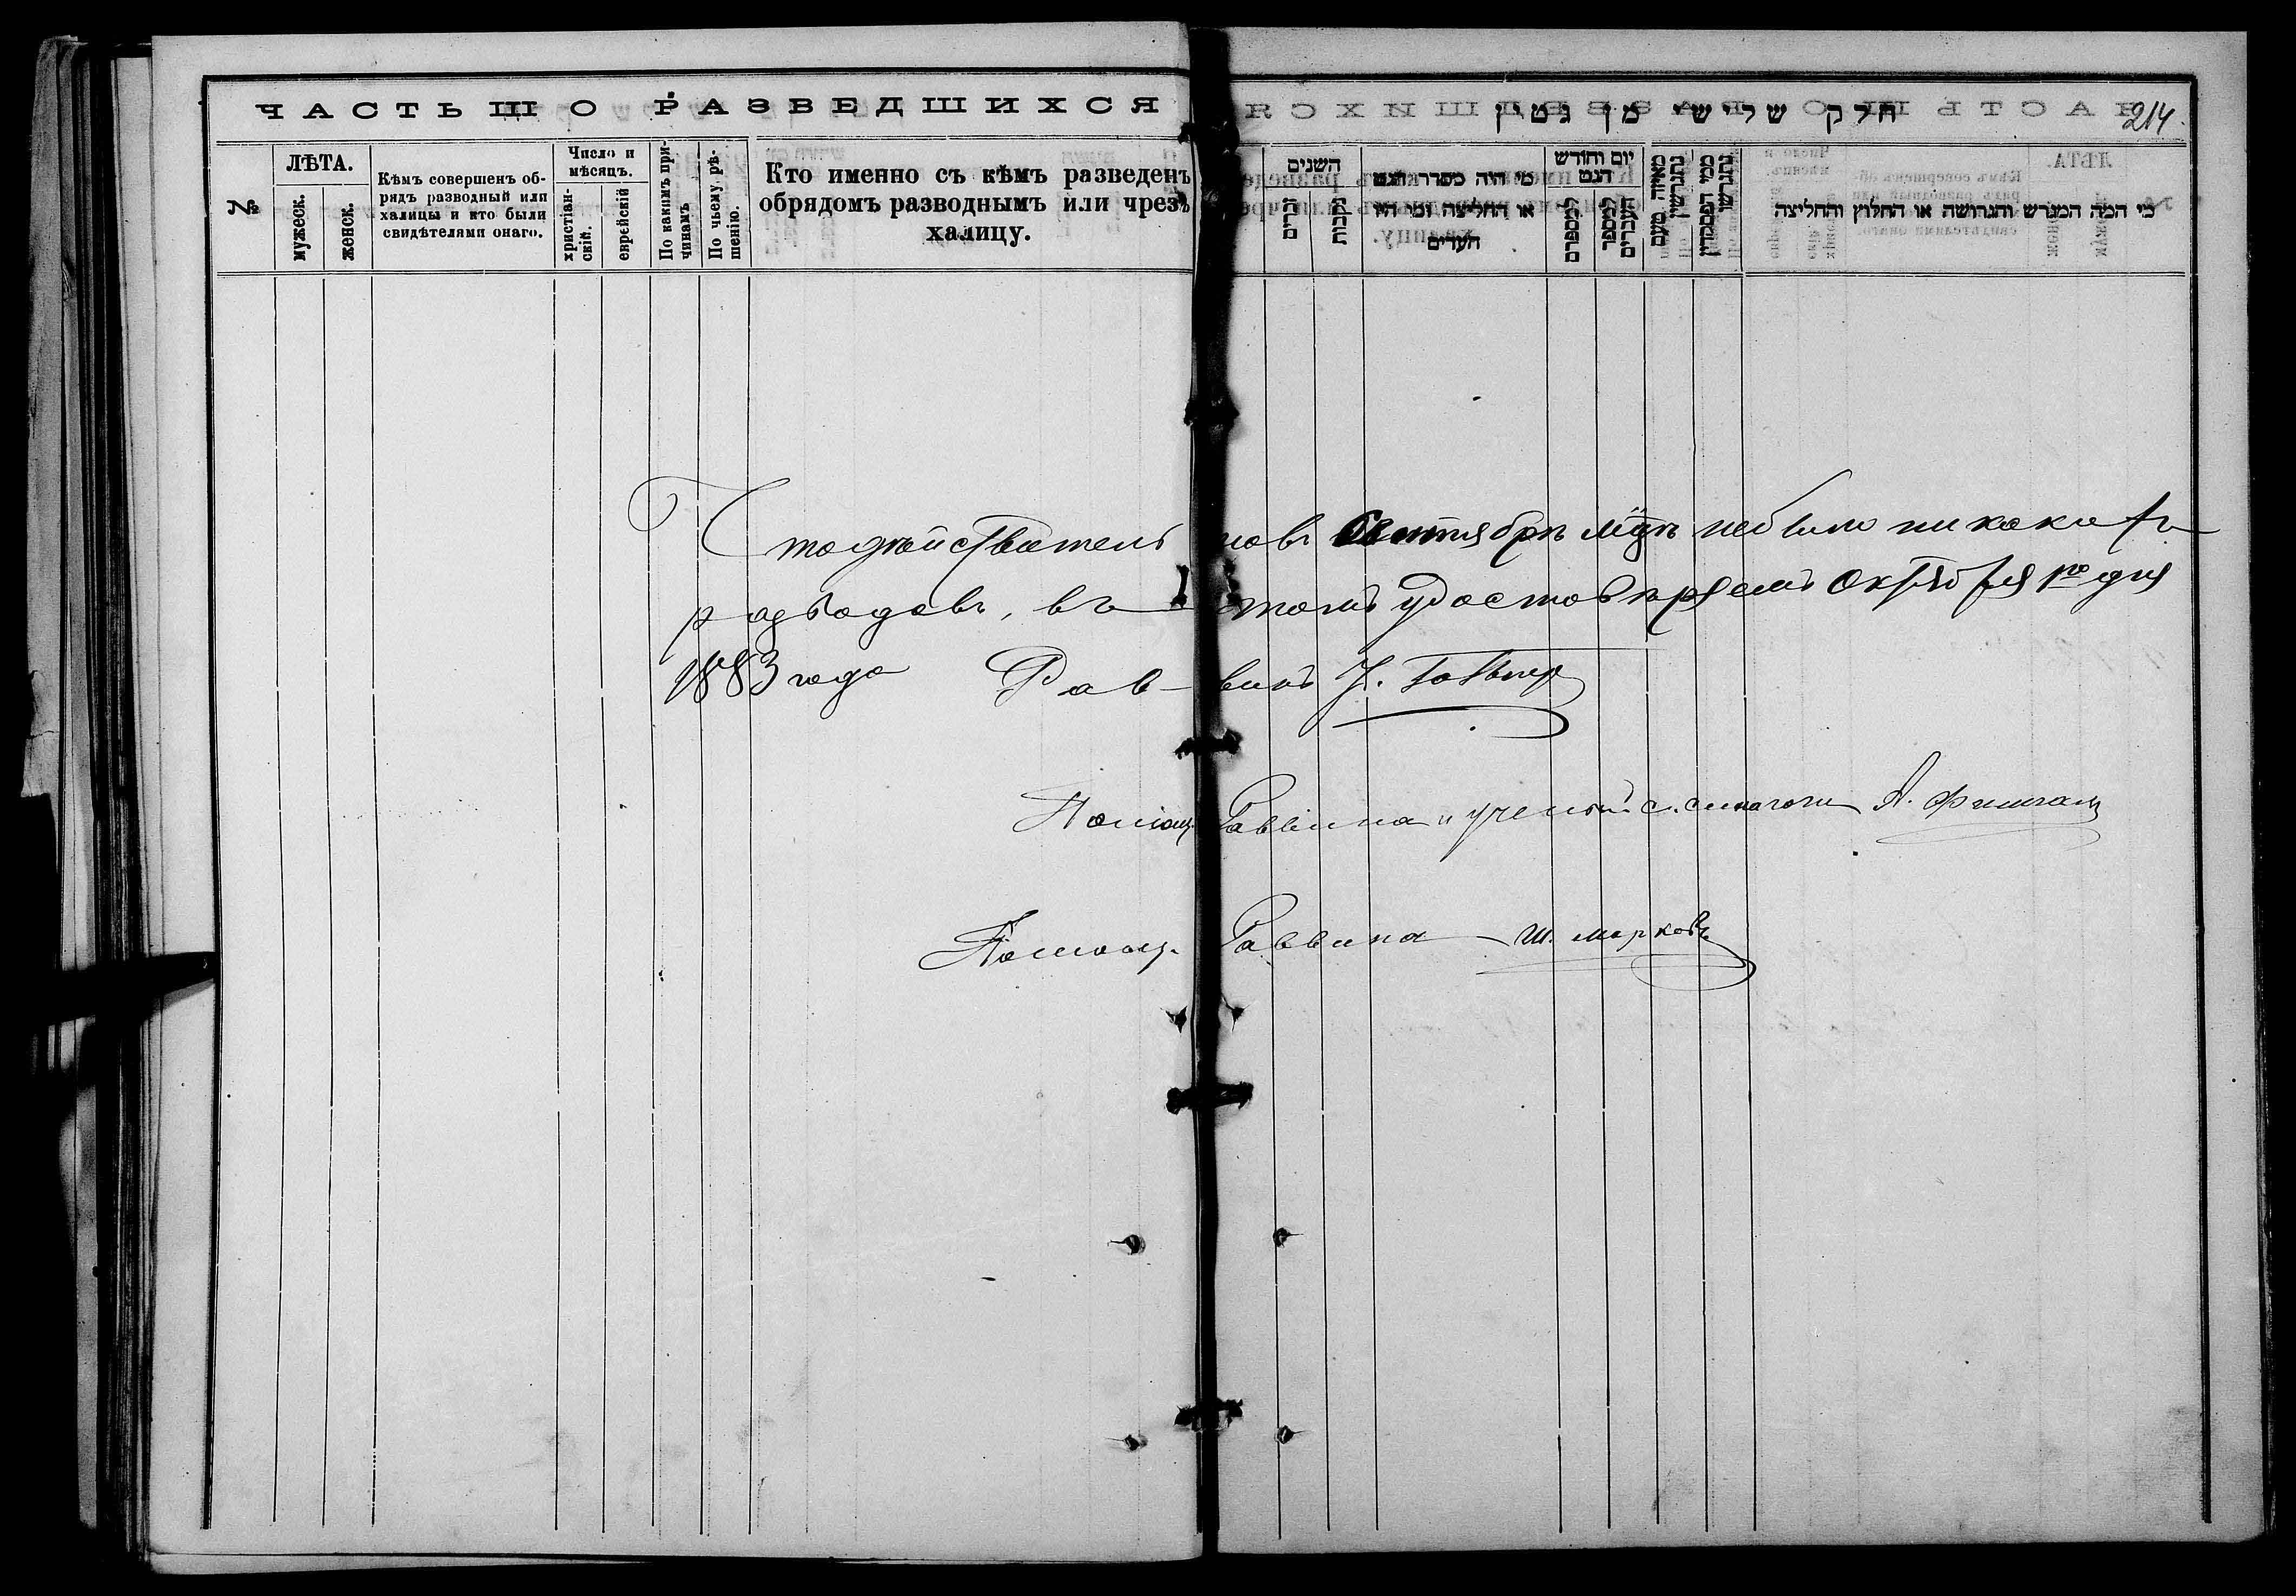 ЧАСТЬ III О РАЗВЕДШИХСЯ
חלק שלישי מן גטין
214
№
ЛѢТА.
мужеск.
женск.
Кѣмъ совершенъ об-
рядъ разводный или
халицы и кто были
свидѣтелями онаго.
Число и
мѣсяцъ.
христіан-
скій.
еврейскій
По какимъ при-
чинамъ
По чьему рѣ-
шенію.
Кто именно съ кѣмъ разведенъ
обрядомъ разводнымъ или чрезъ
халицу.
השנים
זכרים
נקבות
מי היה מסדר הגט
או החליצה ומי היו
העדים
יום וחודש
הגט
למספרם
למספר
העברים
מאיזה טעם
נתגרשו
ממי
נתגרשו
מי המה המגרש והגרושה או החלוץ והחליצה
Что дѣйствительно въ Сентябрѣ м-цѣ небыло никакихъ
разводовъ, въ томъ удостовѣряемъ Октября 1го дня
1883 года Раввинъ
Помощ. Раввина и ученый с. синагоги А. Фишман
Помощ. Раввина Ш. Марковъ